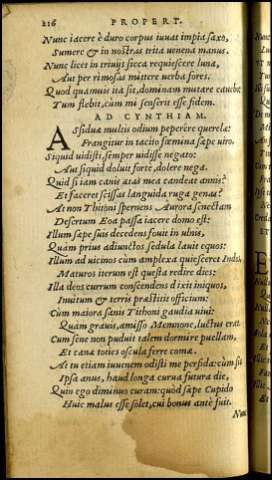 216 PROPERT.
Nunc iacere è duro corpus iuuat impia saxo,
Sumere & in nostras trita venena manus.
Nunc licet in triuijs sicca requiescere luna,
Aut per rimosas mittere verba fores.
Quod quamuis ita sit, dominam mutare cauebo:
Tum flebit, cum mi senserit esse fidem.
AD CYNTHIAM.
Assiduæ multis odium peperêre querelæ:
Frangitur in tacito fœmina sæpe viro.
Siquid vidisti, semper vidisse negato:
Aut siquid doluit forte, dolere nega.
Quid si iam canis ætas mea candeat annis?
Et faceret scissas languida ruga genas?
At non Tithoni spernens Aurora senectam
Desertum Eoa passa iacere domo est:
Illum sæpe suis decedens fouit in vlnis,
Quàm prius adiunctos sedula lauit equos:
Illum ad vicinos cùm amplexa quiesceret Indos,
Maturos iterum est questa redire dies:
Illa deos currum conscendens dixit iniquos,
Inuitum & terris præstitit officium:
Cum maiora senis Tithoni gaudia viui:
Quàm grauis, amisso Memnone, luctus erat.
Cum sene non puduit talem dormire puellam,
Et canæ toties oscula ferre comæ.
At tu etiam iuuenem odisti me perfida: cùm sis
Ipsa anus, haud longa curua futura die.
Quin ego diminuo curam: quòd sæpe Cupido
Huic malus esse solet, cui bonus antè fuit.
Nunc